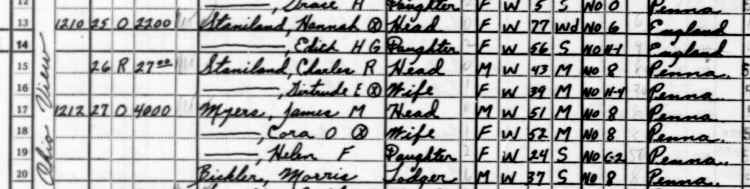 12 ——, Grace H Daughter F W 5 S No 0 Penna
13 1210 25 O 2200 Staniland, Hannah Ⓧ Head F W 77 Wd No 6 England
14 ——, Edith H G Daughter F W 56 S No H-1 England
15 26 R 27⁰⁰ Staniland, Charles R Head M W 43 M No 8 Penna.
16 ——, Gertrude E Ⓧ Wife F W 39 M No H-4 Penna.
17 1212 27 O 4000 Myers, James M Head M W 51 M No 8 Penna.
18 ——, Cora O Ⓧ Wife F W 52 M No 8 Penna.
19 ——, Helen F Daughter F W 24 S No C-2 Penna.
20 Bickler, Morris Lodger M W 37 S No 8 Penna.
Ohio View